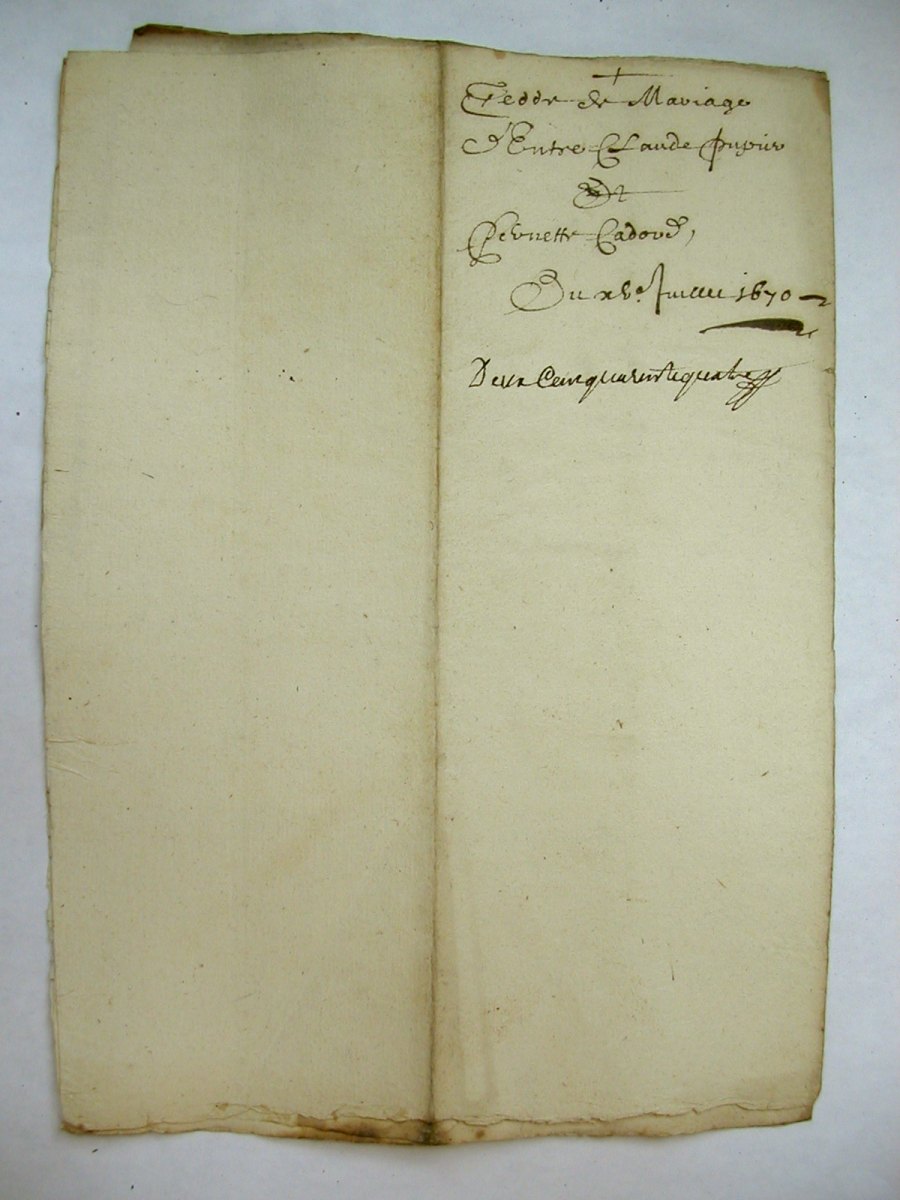 Cedde de Mariage
d'Entre Claude Pupier
Et
Pernette Cadord,
Du xve. Juillet 1670
Deux Cent quarente quatre